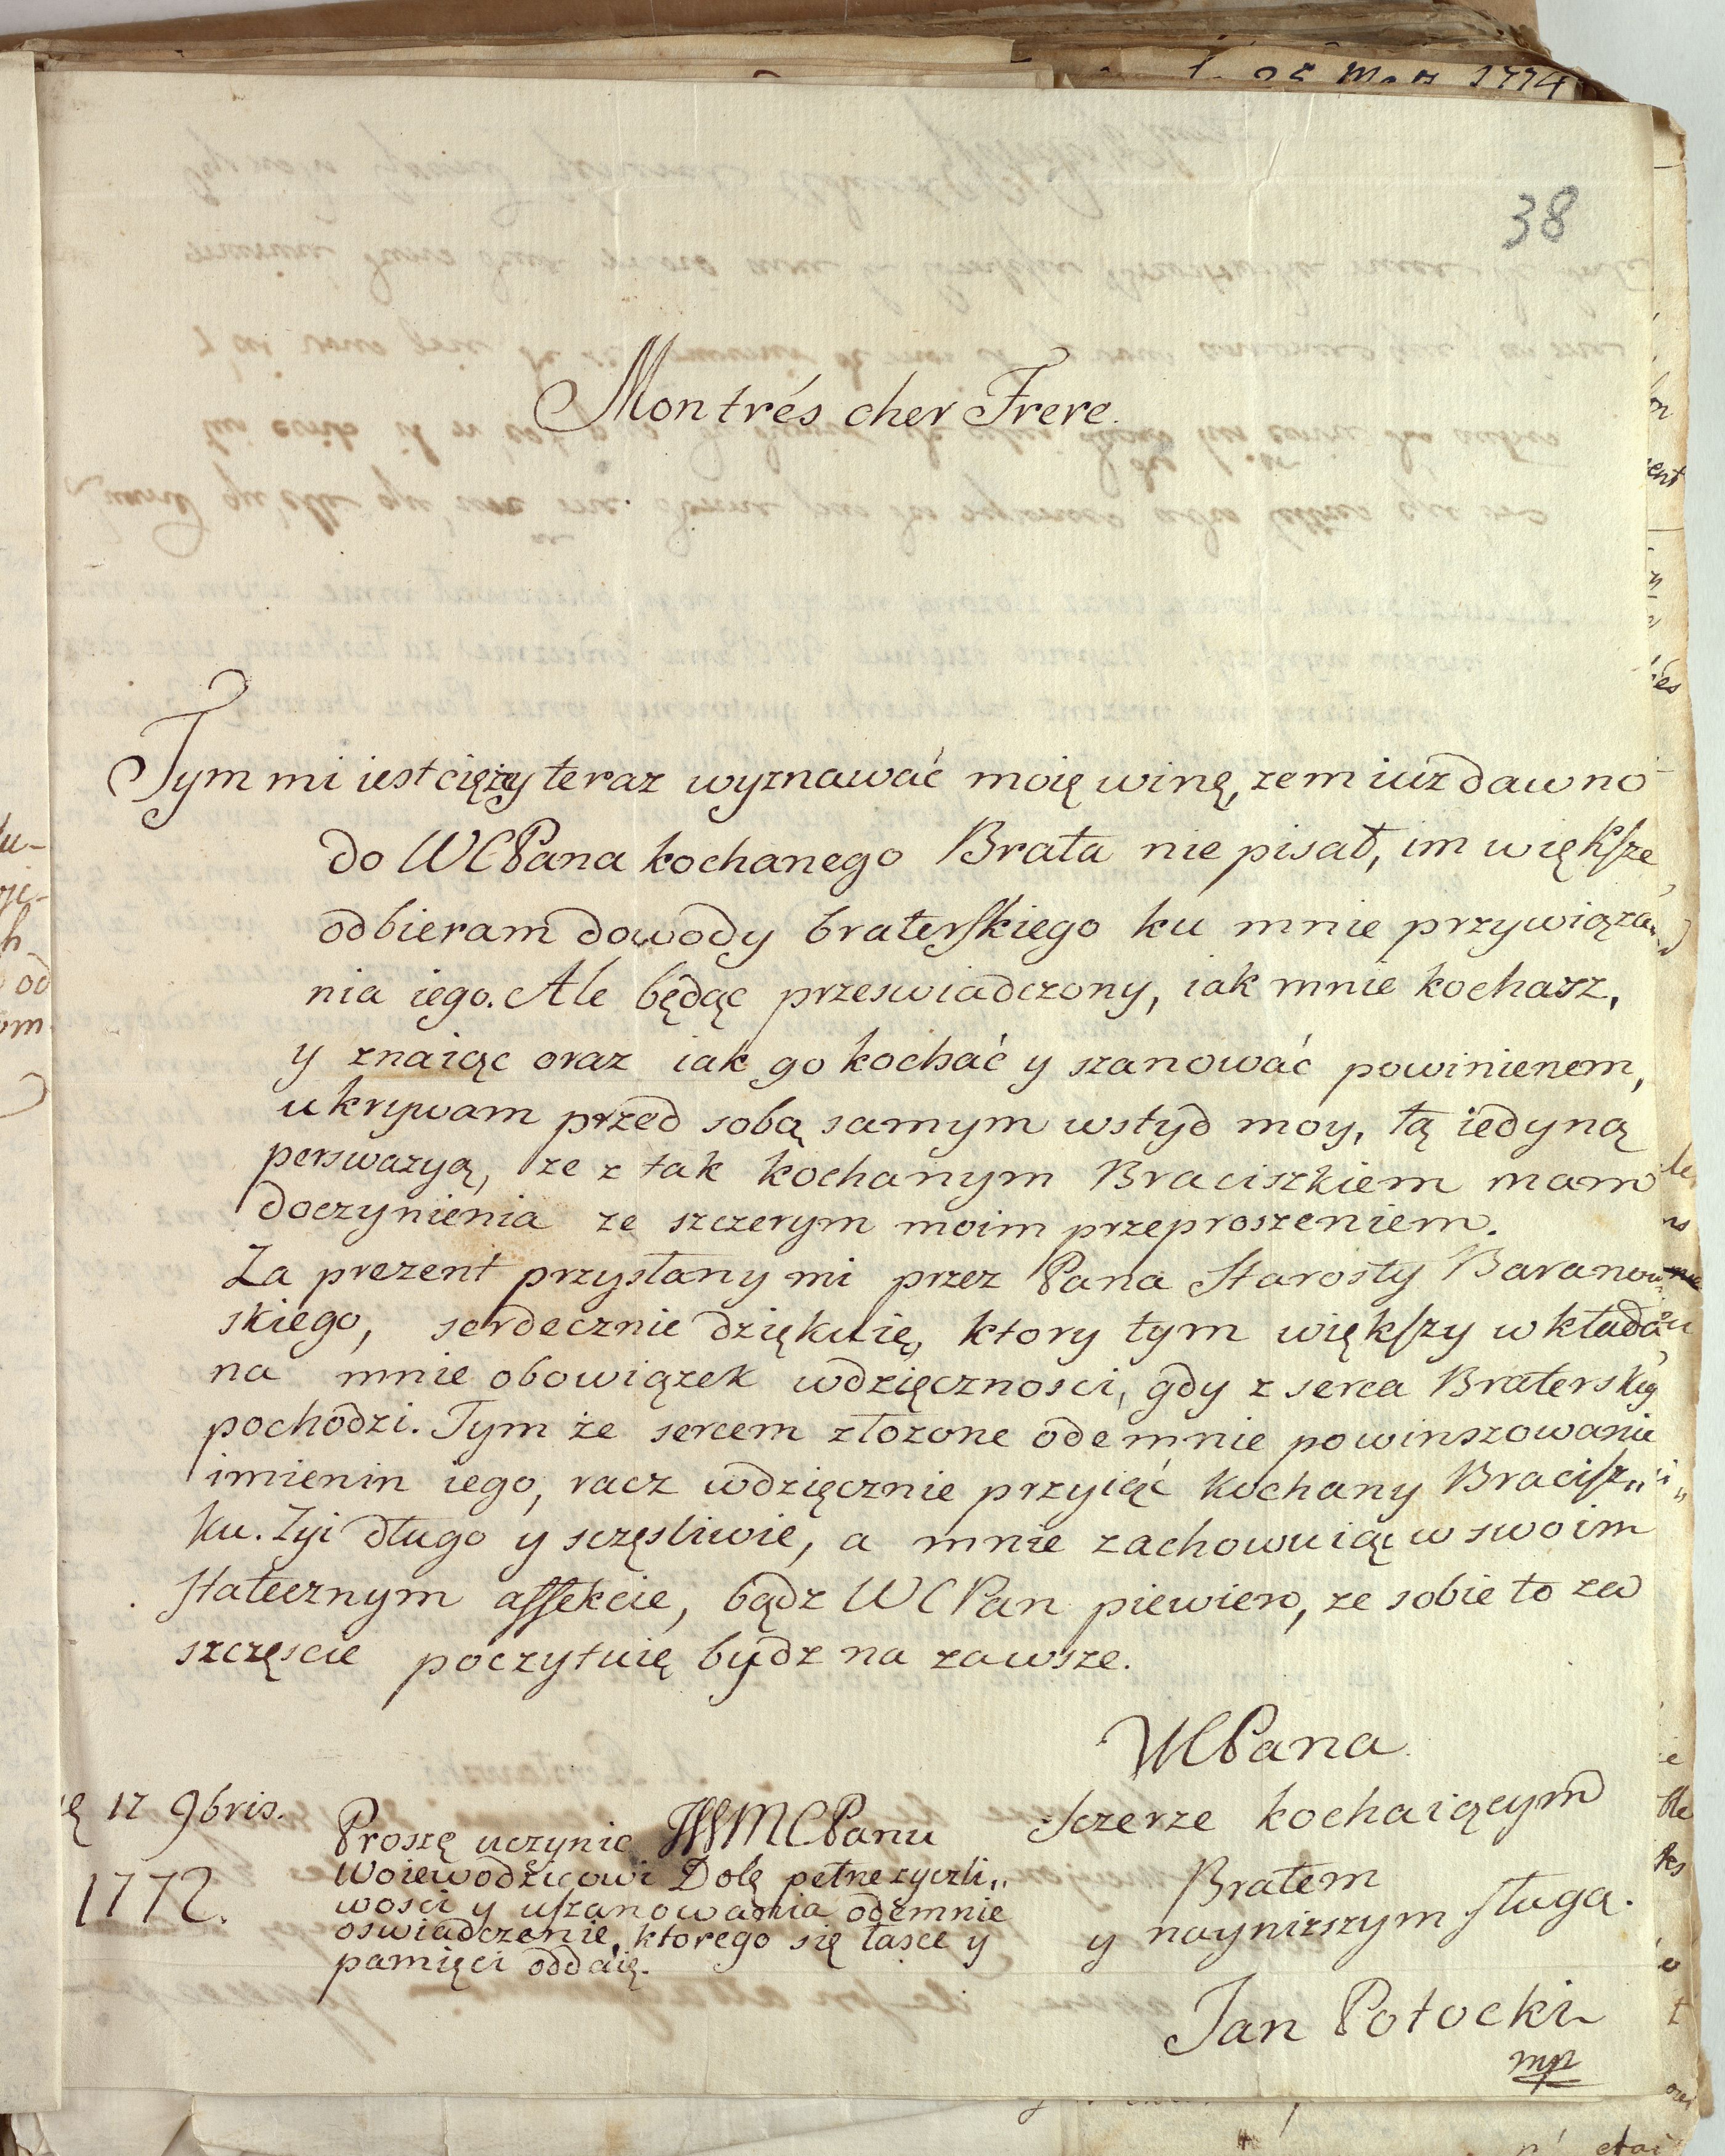 38
Mon trés cher Frere.
Tym mi iest cięży teraz wyznawać moię winę, zem iuz dawno
do WCPana kochanego Brata nie pisał, im większe
odbieram dowody braterskiego ku mnie przywiąza„
nia iego. Ale będąc przeswiadczony, iak mnie kochasz,
y znaiąc oraz iak go kochać y szanować powinienem,
ukrywam przed sobą samym wstyd moy, tą iedyną
perswazyą, ze z tak kochanym Braciszkiem mam
doczynienia ze szczerym moim przeproszeniem.
Za prezent przysłany mi przez Pana Starosty Baranow„
skiego, serdecznie dziękuię, ktory tym większy wkłada
na mnie obowiązek wdzięcznosci, gdy z serca Braterskieg
pochodzi. Tym że sercem złozone odemnie powinszowanie
imienin iego, racz wdzięcznie przyiąć kochany Bracisz„
ku. Zyi długo y sczęsliwie, a mnie zachowuiąc w swoim
statecznym affekcie, bądz WCPan piewien, ze sobie to za
szczęscie poczytuię bydz na zawsze.
WCPana
Sczerze kochaiącym
Bratem
y naynizszym sługą.
Jan Potocki
mp
17 9bris.
1772.
Proszę uczynic JWMCPanu
Woiewodzicowi Dolę pełne zyczli„
wosci y uszanowania odemnie
oswiadczenie, ktorego się łasce y
pamięci oddaię.